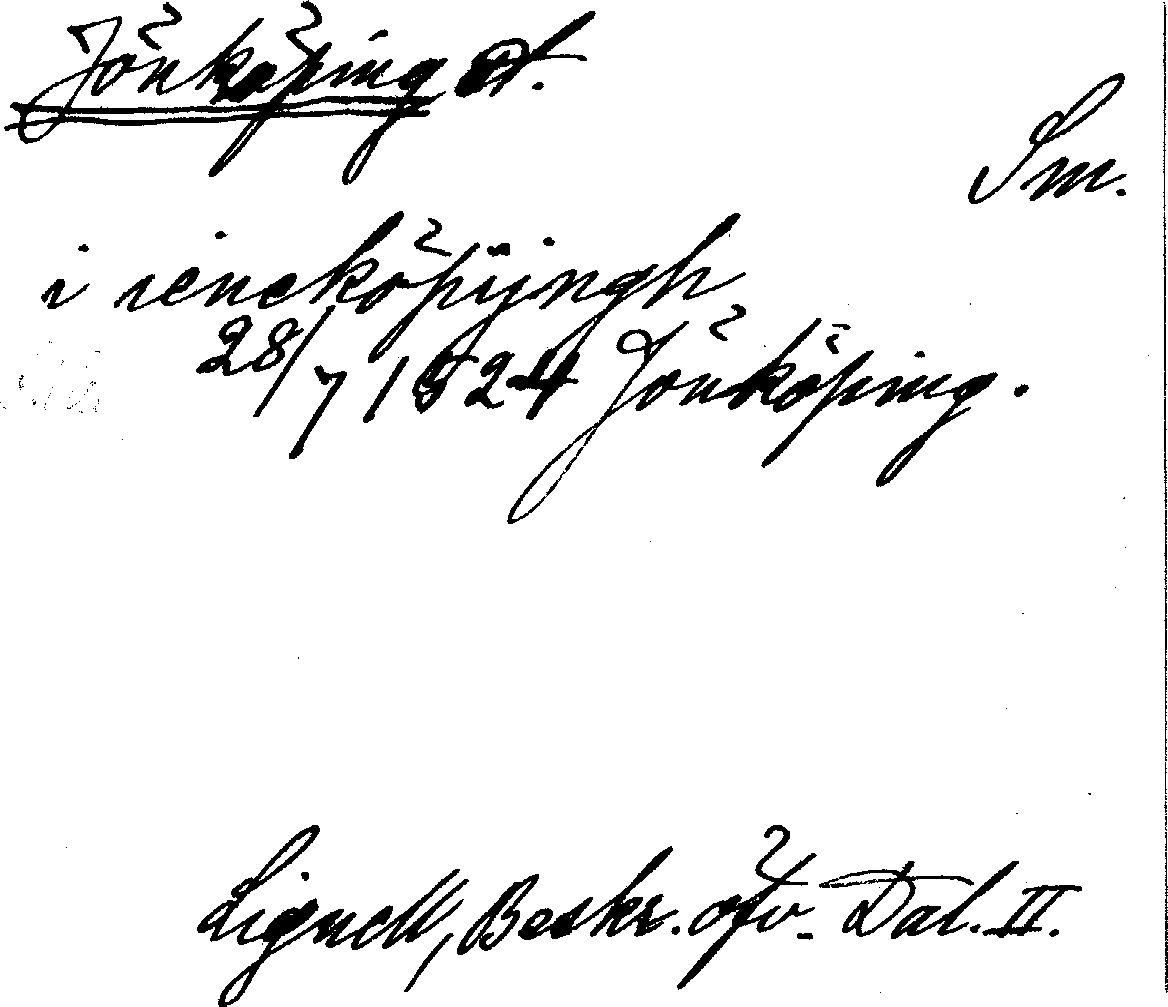 Jönköping st.
Sm.
i ieneköpijngh
28/7 1524 Jönköping.
Lignell, Beskr. öfv. Dal. II.